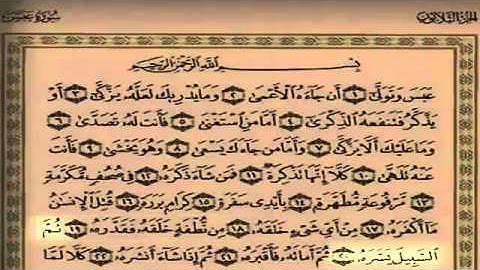 سُورَةُ عَبَسَ
الجزء الثلاثون
بِسْمِ اللَّهِ الرَّحْمَٰنِ الرَّحِيمِ
عَبَسَ وَتَوَلَّىٰٓ ١ أَن جَآءَهُ ٱلْأَعْمَىٰ ٢ وَمَا يُدْرِيكَ لَعَلَّهُۥ يَزَّكَّىٰٓ ٣ أَوْ
يَذَّكَّرُ فَتَنفَعَهُ ٱلذِّكْرَىٰٓ ٤ أَمَّا مَنِ ٱسْتَغْنَىٰ ٥ فَأَنتَ لَهُۥ تَصَدَّىٰ ٦
وَمَا عَلَيْكَ أَلَّا يَزَّكَّىٰ ٧ وَأَمَّا مَن جَآءَكَ يَسْعَىٰ ٨ وَهُوَ يَخْشَىٰ ٩ فَأَنتَ
عَنْهُ تَلَهَّىٰ ١٠ كَلَّآ إِنَّهَا تَذْكِرَةٌ ١١ فَمَن شَآءَ ذَكَرَهُۥ ١٢ فِى صُحُفٍ مُّكَرَّمَةٍ
١٣ مَّرْفُوعَةٍ مُّطَهَّرَةٍۭ ١٤ بِأَيْدِى سَفَرَةٍ ١٥ كِرَامٍۭ بَرَرَةٍ ١٦ قُتِلَ ٱلْإِنسَٰنُ
مَآ أَكْفَرَهُۥ ١٧ مِنْ أَىِّ شَىْءٍ خَلَقَهُۥ ١٨ مِن نُّطْفَةٍ خَلَقَهُۥ فَقَدَّرَهُۥ ١٩ ثُمَّ
ٱلسَّبِيلَ يَسَّرَهُۥ ٢٠ ثُمَّ أَمَاتَهُۥ فَأَقْبَرَهُۥ ٢١ ثُمَّ إِذَا شَآءَ أَنشَرَهُۥ ٢٢ كَلَّا لَمَّا